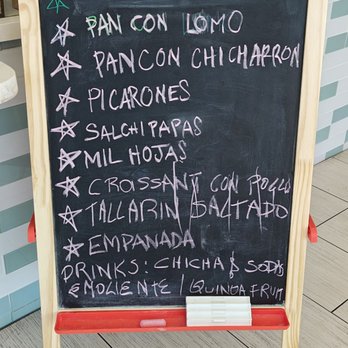 PAN CON LOMO
PAN CON CHICHARRON
PICARONES
SALCHIPAPAS
MIL HOJAS
CROISSANT CON POLLO
TALLARIN SALTADO
EMPANADA
DRINKS: CHICHA & SODAS
EMOLIENTE / QUINOA FRUIT